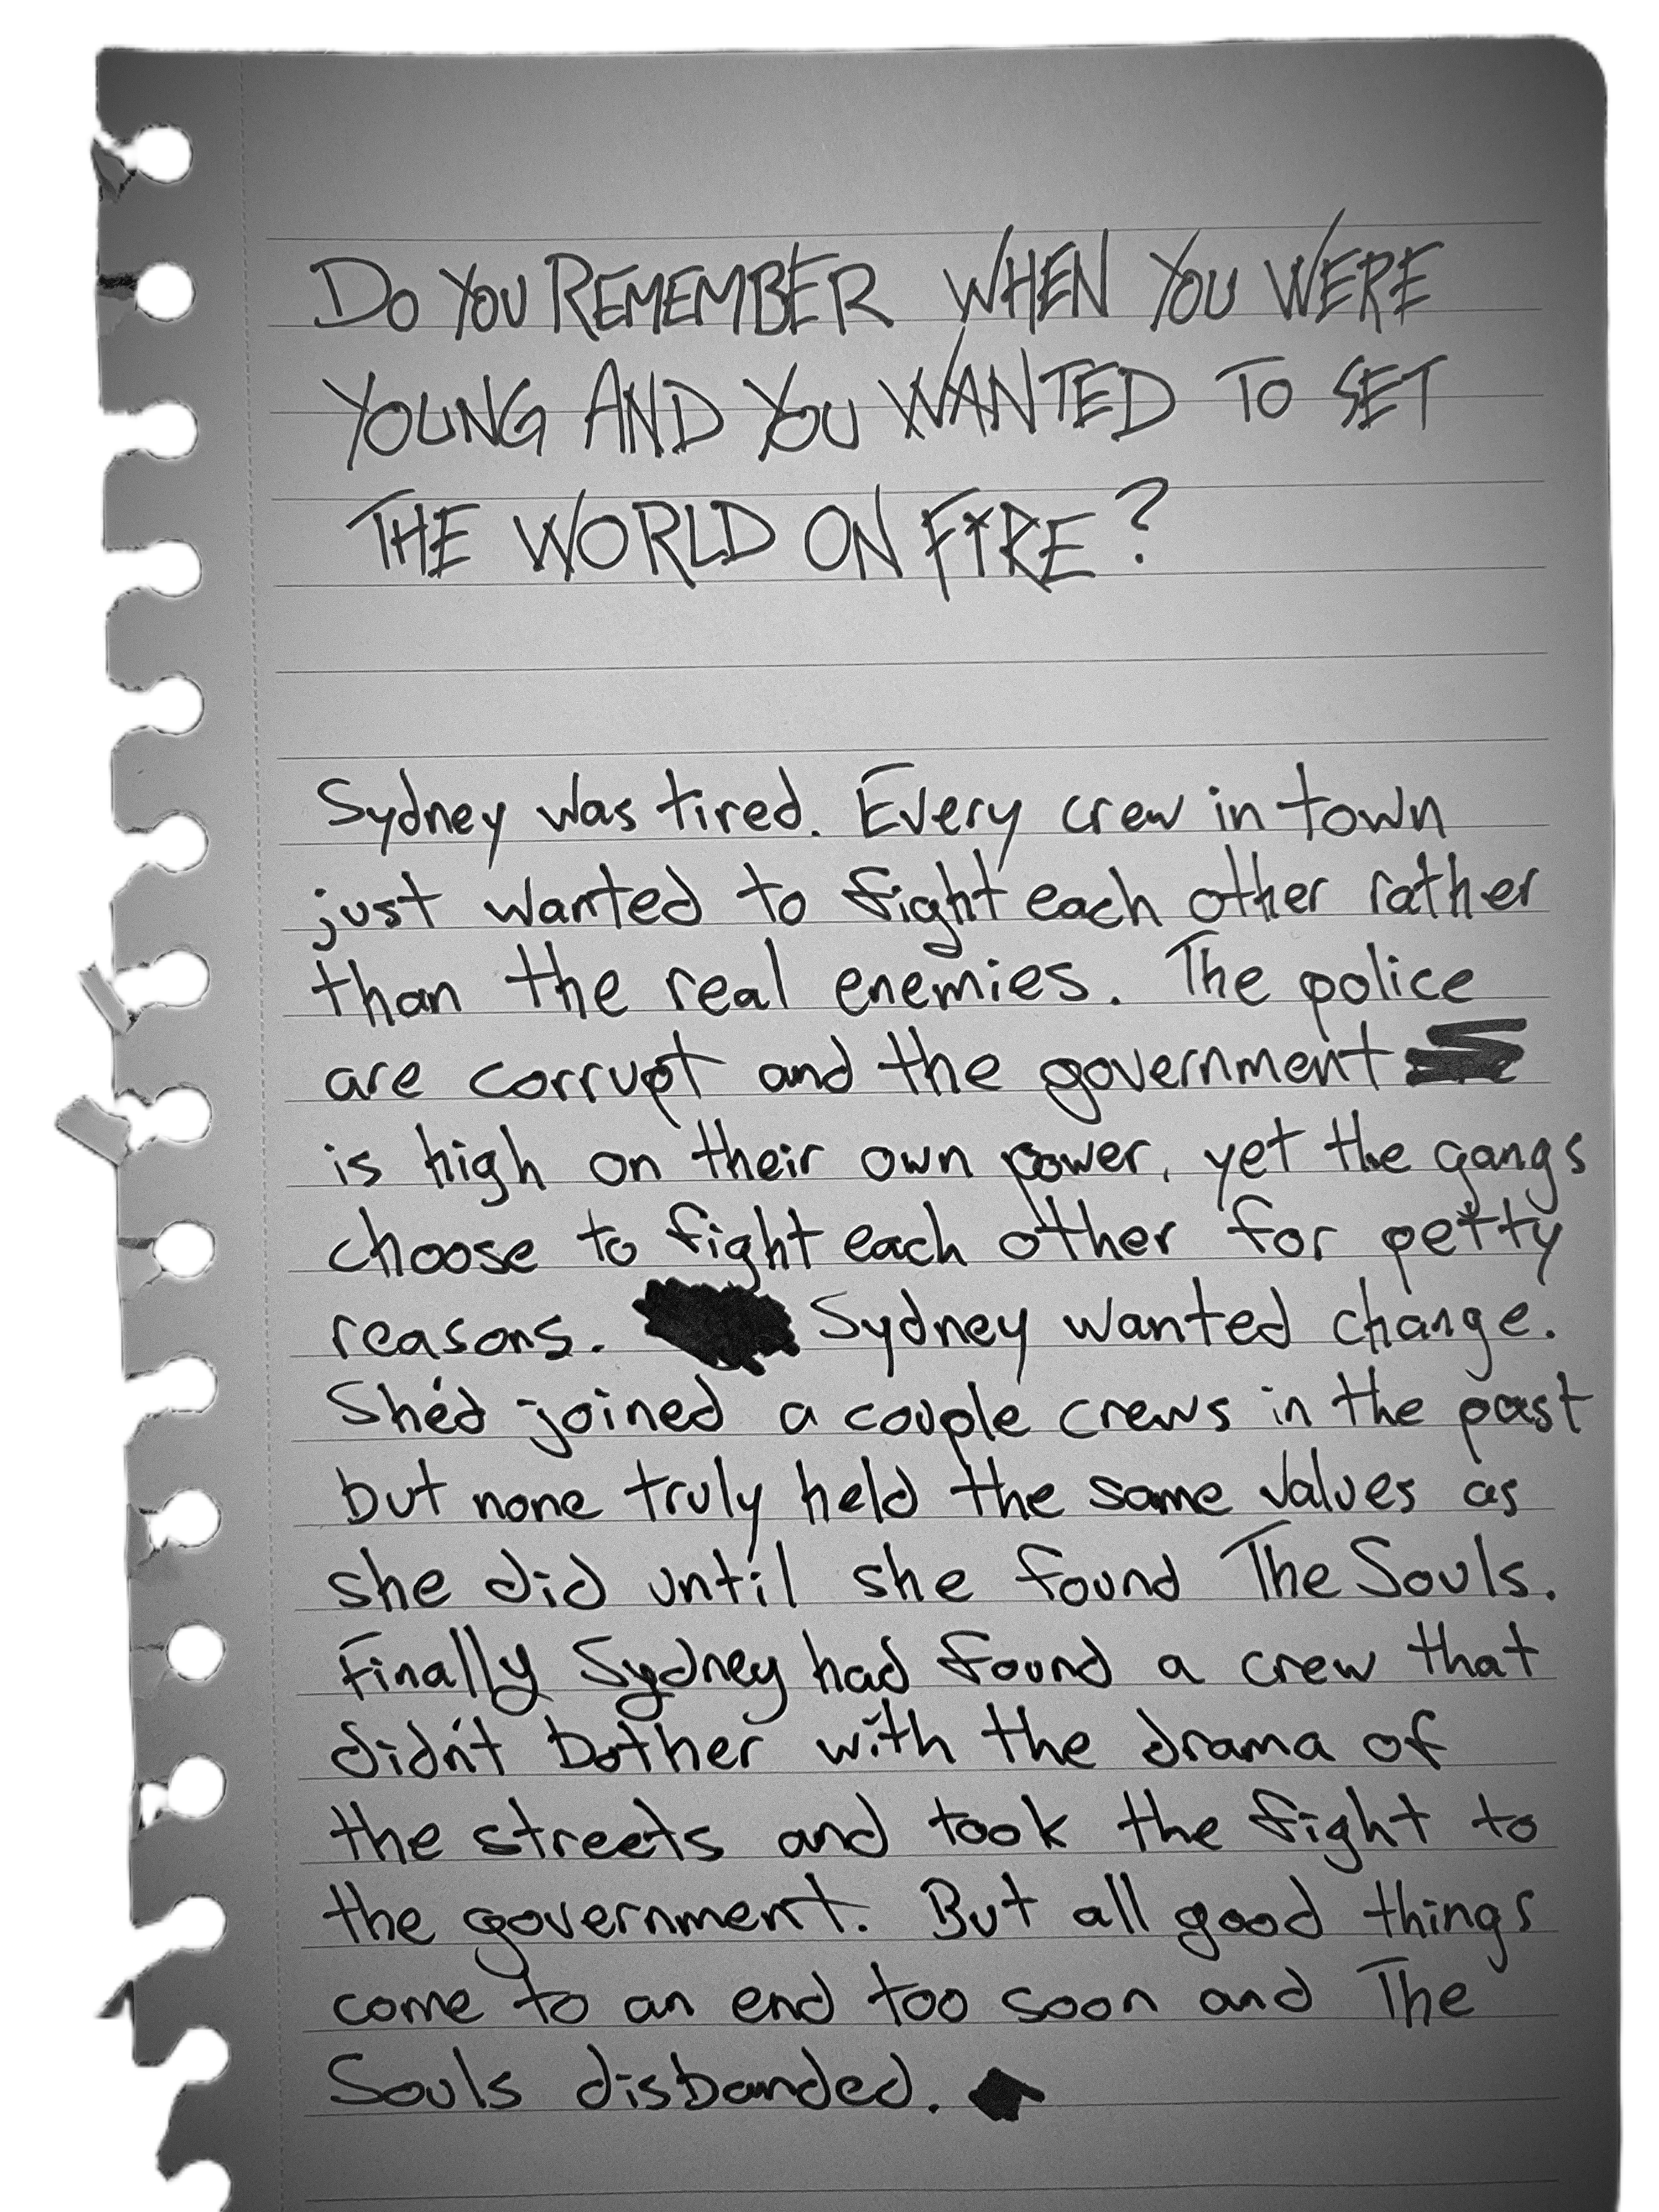 DO YOU REMEMBER WHEN YOU WERE
YOUNG AND YOU WANTED TO SET
THE WORLD ON FIRE?
Sydney was tired. Every crew in town
just wanted to fight each other rather
than the real enemies. The police
are corrupt and the government
is high on their own power, yet the gangs
choose to fight each other for petty
reasons. Sydney wanted change.
She'd joined a couple crews in the past
but none truly held the same values as
she did until she found The Souls.
Finally Sydney had found a crew that
didn't bother with the drama of
the streets and took the fight to
the government. But all good things
come to an end too soon and The
Souls disbanded.